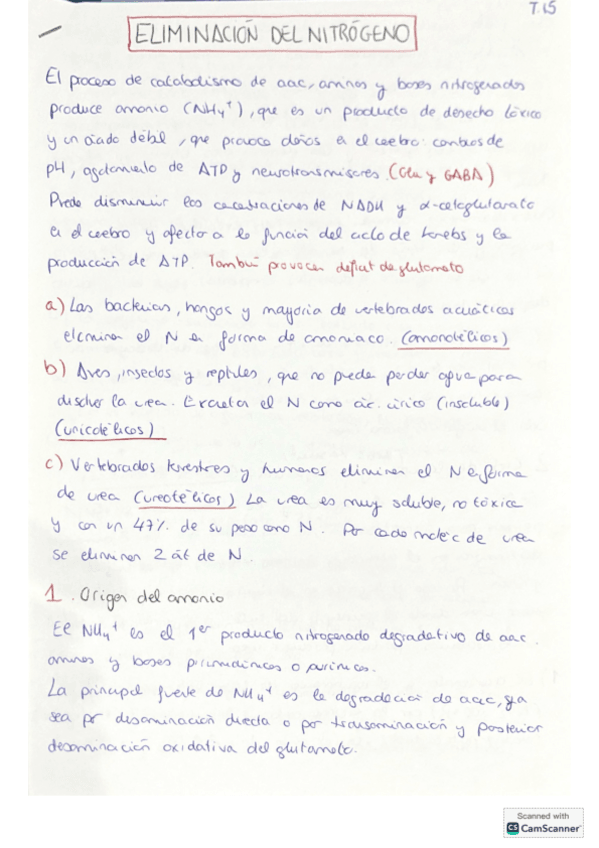 T.15
ELIMINACIÓN DEL NITRÓGENO
El proceso de catabolismo de aac, aminas y bases nitrogenadas
produce amonio (NH4+), que es un producto de desecho tóxico
y un ácido débil, que provoca daños en el cerebro: cambios de
pH, agotamiento de ATP y neurotransmisores. (Glu y GABA)
Puede disminuir las concentraciones de NADH y α-cetoglutarato
en el cerebro y afectar a la función del ciclo de Krebs y la
producción de ATP. También provocan déficit de glutamato
a) Las bacterias, hongos y mayoría de vertebrados acuáticos
eliminan el N en forma de amoniaco. (amonotélicos)
b) Aves, insectos y reptiles, que no puede perder agua para
disolver la urea. Excretan el N como ác. úrico (insoluble)
(uricotélicos)
c) Vertebrados terrestres y humanos eliminan el N en forma
de urea (ureotélicos) La urea es muy soluble, no tóxica
y con un 47% de su peso como N. Por cada moléc de urea
se eliminan 2 át de N.
1. Origen del amonio
El NH4+ es el 1er producto nitrogenado degradativo de aac.
aminas y bases pirimidínicas o purínicas.
La principal fuente de NH4+ es la degradación de aac, ya
sea por desaminación directa o por transaminación y posterior
desaminación oxidativa del glutamato.
Scanned with
CS CamScanner